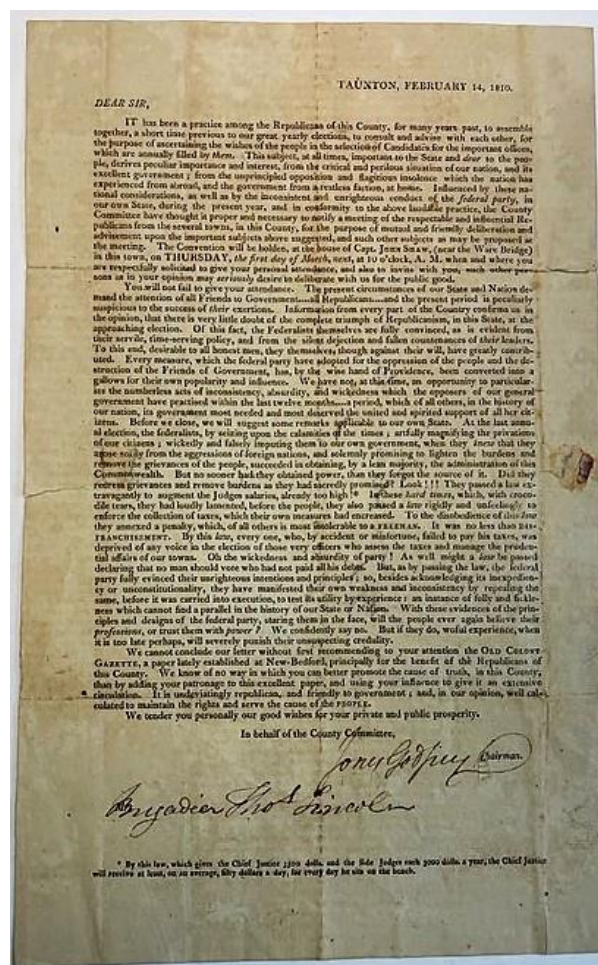 TAUNTON, FEBRUARY 14, 1810.
DEAR SIR,
IT has been a practice among the Republicans of this County, for many years past, to assemble
together, a short time previous to our great yearly elections, to consult and advise with each other, for
the purpose of ascertaining the wishes of the people in the selection of Candidates for the important offices,
which are annually filled by them. This subject, at all times, important to the State and dear to the peo-
ple, derives peculiar importance and interest, from the critical and perilous situation of our nation, and its
excellent government; from the unprincipled opposition and flagitious insolence which the nation has
experienced from abroad, and the government from a restless faction, at home. Influenced by these na-
tional considerations, as well as by the inconsistent and unrighteous conduct of the federal party, in
our own State, during the present year, and in conformity to the above laudable practice, the County
Committee have thought it proper and necessary to notify a meeting of the respectable and influential Re-
publicans from the several towns, in this County, for the purpose of mutual and friendly deliberation and
advisement upon the important subjects above suggested, and such other subjects as may be proposed at
the meeting. The Convention will be holden, at the house of Capt. JOHN SHAW, (near the Ware Bridge)
in this town, on THURSDAY, the first day of March, next, at 10 o'clock, A. M. when and where you
are respectfully solicited to give your personal attendance, and also to invite with you, such other per-
sons as in your opinion may seriously desire to deliberate with us for the public good.
You will not fail to give your attendance. The present circumstances of our State and Nation de-
mand the attention of all Friends to Government....all Republicans....and the present period is peculiarly
auspicious to the success of their exertions. Information from every part of the Country confirms us in
the opinion, that there is very little doubt of the complete triumph of Republicanism, in this State, at the
approaching election. Of this fact, the Federalists themselves are fully convinced, as is evident from
their servile, time-serving policy, and from the silent dejection and fallen countenances of their leaders.
To this end, desirable to all honest men, they themselves, though against their will, have greatly contrib-
uted. Every measure, which the federal party have adopted for the oppression of the people and the de-
struction of the Friends of Government, has, by the wise hand of Providence, been converted into a
gallows for their own popularity and influence. We have not, at this time, an opportunity to particular-
ize the numberless acts of inconsistency, absurdity, and wickedness which the opposers of our general
government have practised within the last twelve months....a period, which of all others, in the history of
our nation, its government most needed and most deserved the united and spirited support of all her cit-
izens. Before we close, we will suggest some remarks applicable to our own State. At the last annu-
al election, the federalists, by seizing upon the calamities of the times; artfully magnifying the privations
of our citizens; wickedly and falsely imputing them to our own government, when they knew that they
arose solely from the aggressions of foreign nations, and solemnly promising to lighten the burdens and
remove the grievances of the people, succeeded in obtaining, by a lean majority, the administration of this
Commonwealth. But no sooner had they obtained power, than they forgot the source of it. Did they
redress grievances and remove burdens as they had sacredly promised? Look!!! They passed a law ex-
travagantly to augment the Judges salaries, already too high!* In these hard times, which, with croco-
dile tears, they had loudly lamented, before the people, they also passed a law rigidly and unfeelingly to
enforce the collection of taxes, which their own measures had increased. To the disobedience of this law
they annexed a penalty, which, of all others is most intolerable to a FREEMAN. It was no less than DIS-
FRANCHISEMENT. By this law, every one, who, by accident or misfortune, failed to pay his taxes, was
deprived of any voice in the election of those very officers who assess the taxes and manage the pruden-
tial affairs of our towns. Oh the wickedness and absurdity of party! As well might a law be passed
declaring that no man should vote who had not paid all his debts. But, as by passing the law, the federal
party fully evinced their unrighteous intentions and principles; so, besides acknowledging its inexpedien-
cy or unconstitutionality, they have manifested their own weakness and inconsistency by repealing the
same, before it was carried into execution, to test its utility by experience: an instance of folly and fickle-
ness which cannot find a parallel in the history of our State or Nation. With these evidences of the prin-
ciples and designs of the federal party, staring them in the face, will the people ever again believe their
professions, or trust them with power? We confidently say no. But if they do, woful experience, when
it is too late perhaps, will severely punish their unsuspecting credulity.
We cannot conclude our letter without first recommending to your attention the OLD COLONY
GAZETTE, a paper lately established at New-Bedford, principally for the benefit of the Republicans of
this County. We know of no way in which you can better promote the cause of truth, in this County,
than by adding your patronage to this excellent paper, and using your influence to give it an extensive
circulation. It is undeviatingly republican, and friendly to government; and, in our opinion, well cal-
culated to maintain the rights and serve the cause of the PEOPLE.
We tender you personally our good wishes for your private and public prosperity.
In behalf of the County Committee,
Jones Godfrey Chairman.
Brigadier Thos Lincoln
* By this law, which gives the Chief Justice 3500 dolls. and the Side Judges each 3000 dolls. a year, the Chief Justice
will receive at least, on an average, fifty dollars a day, for every day he sits on the bench.